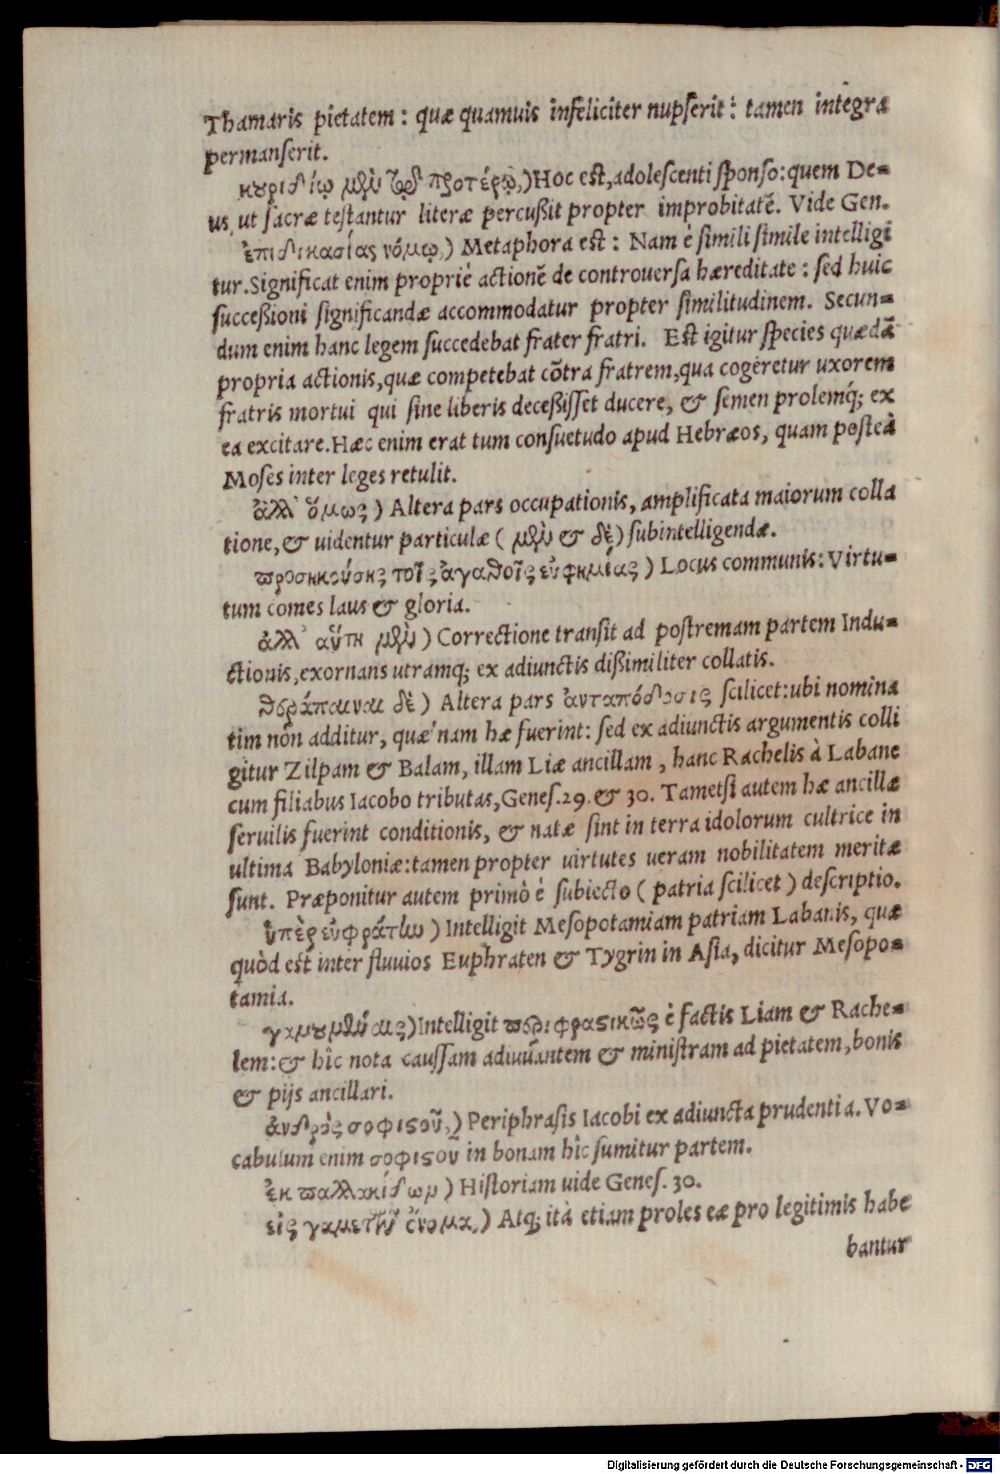 Thamaris pietatem: quæ quamuis infeliciter nupserit: tamen integra
permanserit.
κουριδίῳ μὲν τῷ προτέρῳ,) Hoc est, adolescenti sponso: quem De-
us, ut sacræ testantur literæ percußit propter improbitatē. Vide Gen.
ἐπιδικασίας νόμῳ,) Metaphora est: Nam è simili simile intelligi
tur. Significat enim propriè actionē de controuersa hæreditate: sed huic
succeßioni significandæ accommodatur propter similitudinem. Secun-
dum enim hanc legem succedebat frater fratri. Est igitur species quædā
propria actionis, quæ competebat cōtra fratrem, qua cogeretur uxorem
fratris mortui qui sine liberis deceßisset ducere, & semen prolemq́; ex
ea excitare. Hæc enim erat tum consuetudo apud Hebræos, quam posteà
Moses inter leges retulit.
ἀλλ' ὅμως) Altera pars occupationis, amplificata maiorum colla
tione, & uidentur particulæ (μὲν & δὲ) subintelligendæ.
προσηκούσης τοῖς ἀγαθοῖς εὐφημίας) Locus communis: Virtu-
tum comes laus & gloria.
ἀλλ' αὕτη μὲν) Correctione transit ad postremam partem Indu-
ctionis, exornans utramq; ex adiunctis dißimiliter collatis.
θεράπαιναι δὲ) Altera pars ἀνταπόδοσις scilicet: ubi nomina
tim non additur, quæ nam hæ fuerint: sed ex adiunctis argumentis colli
gitur Zilpam & Balam, illam Liæ ancillam, hanc Rachelis à Labane
cum filiabus Iacobo tributas, Genes. 29. & 30. Tametsi autem hæ ancillæ
seruilis fuerint conditionis, & natæ sint in terra idolorum cultrice in
ultima Babyloniæ: tamen propter uirtutes ueram nobilitatem meritæ
sunt. Præponitur autem primò è subiecto (patria scilicet) descriptio.
ὑπὲρ εὐφράτην) Intelligit Mesopotamiam patriam Labanis, quæ
quòd est inter fluuios Euphraten & Tygrin in Asia, dicitur Mesopo-
tamia.
γαμουμέναις) Intelligit περιφραστικῶς è factis Liam & Rache-
lem: & hîc nota caussam adiuuantem & ministram ad pietatem, bonis
& pijs ancillari.
ἀνδρὸς σοφιστοῦ,) Periphrasis Iacobi ex adiuncta prudentia. Vo-
cabulum enim σοφιστοῦ in bonam hîc sumitur partem.
ἐκ παλλακίδων) Historiam uide Genes. 30.
εἰς γαμετῆς ὄνομα,) Atq; ità etiam proles eæ pro legitimis habe
bantur
Digitalisierung gefördert durch die Deutsche Forschungsgemeinschaft - DFG